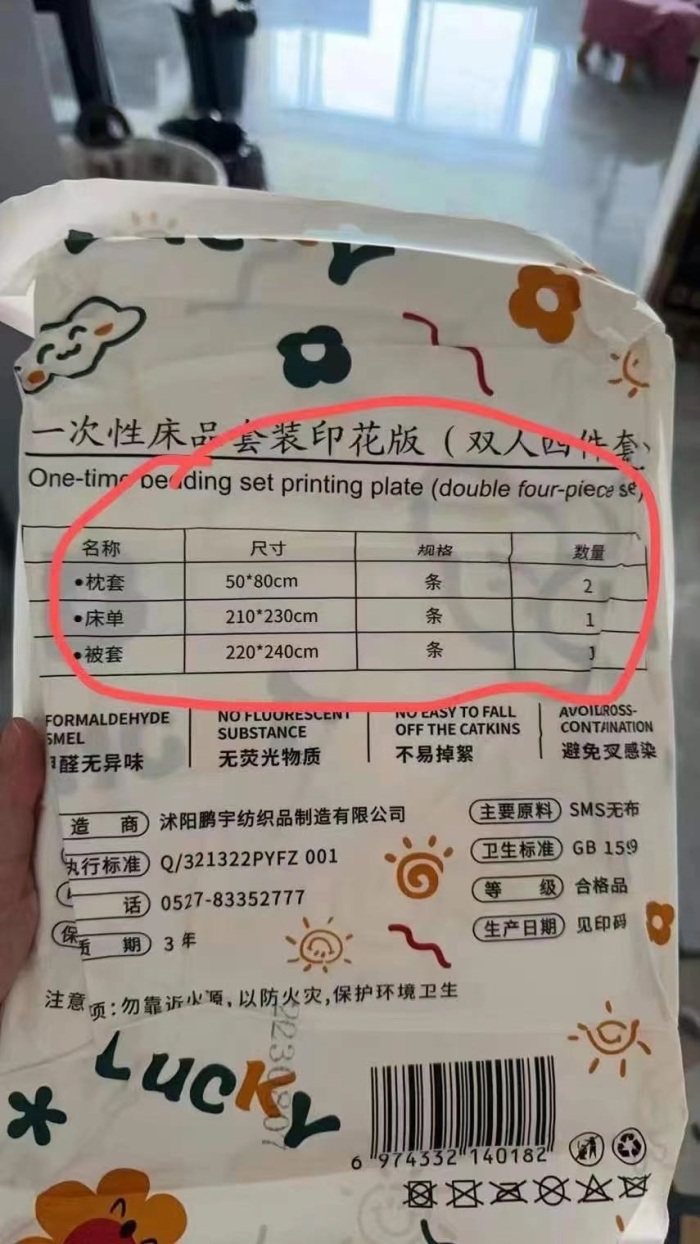 一次性床品套装印花版（双人四件套
One-time bedding set printing plate (double four-piece set)
名称 尺寸 规格 数量
•枕套 50*80cm 条 2
•床单 210*230cm 条 1
•被套 220*240cm 条 1
FORMALDEHYDE SMEL
醛无异味
NO FLUORESCENT SUBSTANCE
无荧光物质
NO EASY TO FALL OFF THE CATKINS
不易掉絮
避免叉感染
造 商 沭阳鹏宇纺织品制造有限公司
执行标准 Q/321322PYFZ 001
话 0527-83352777
保质 期 3年
主要原料 SMS无布
卫生标准 GB 159
等 级 合格品
生产日期 见印码
注意 项:勿靠近火源,以防火灾,保护环境卫生
Lucky
6 974332 140182